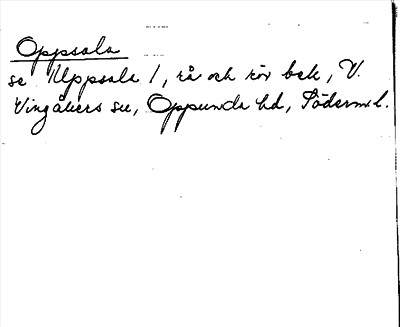 Oppsala
se Uppsala 1, rå och rör bek, V.
Vingåkers sn, Oppunda hd, Söderm.l.